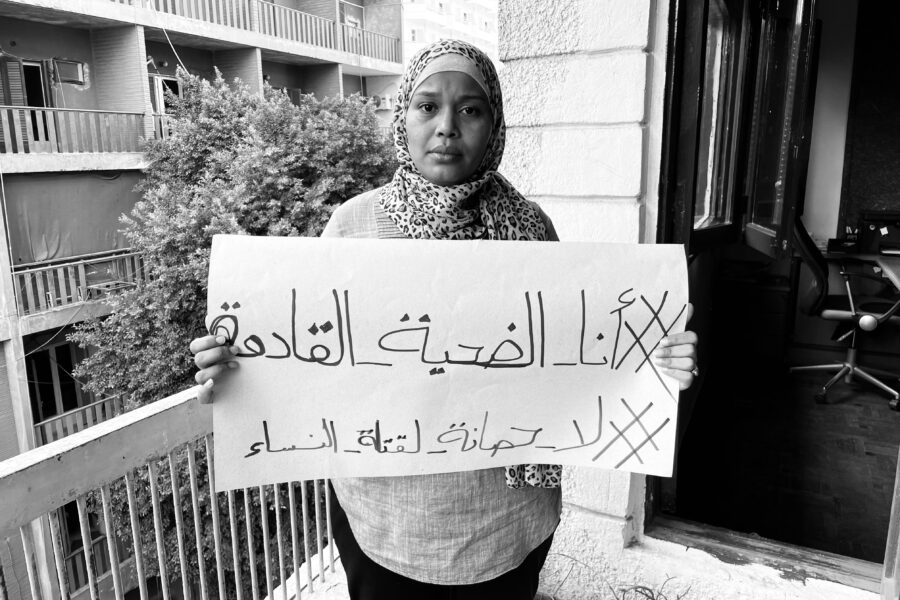 #أنا_الضحية_القادمة
#لا_حصانة_لقتلة_النساء